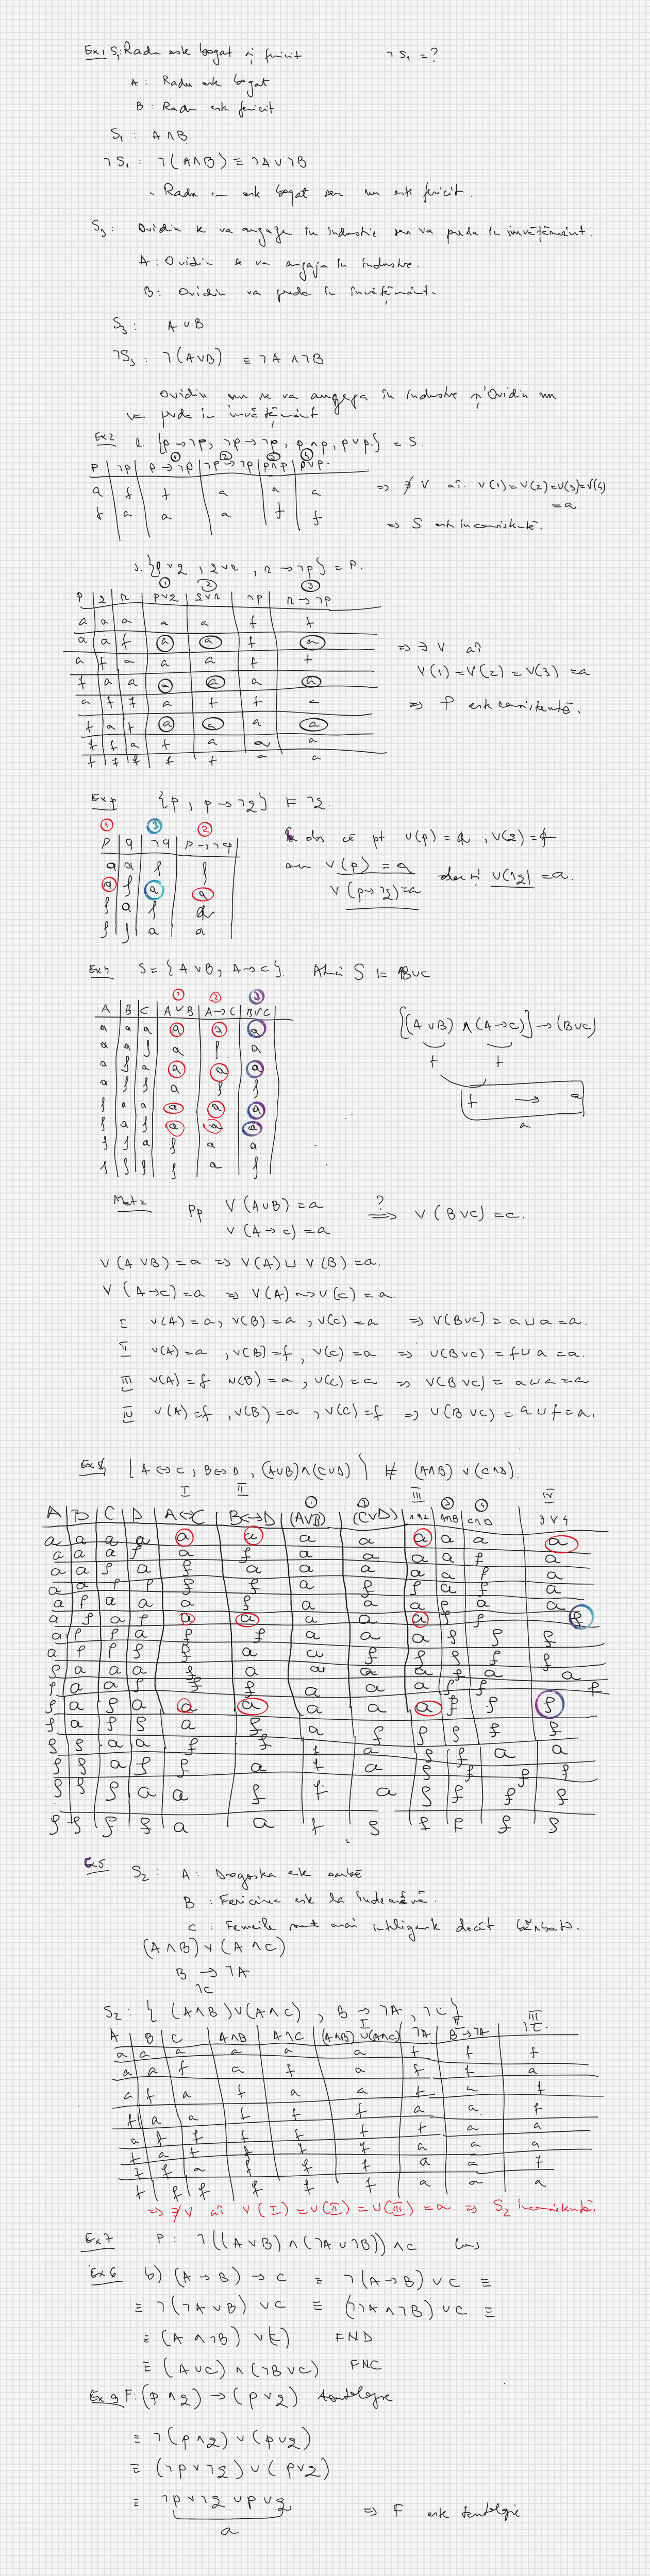 Ex 1 S₁: Radu este bogat și fericit ¬S₁ = ?
A: Radu este bogat
B: Radu este fericit
S₁: A∧B
¬S₁: ¬(A∧B) ≡ ¬A∨¬B
Radu nu este bogat sau nu este fericit.
S₃: Ovidiu se va angaja în industrie sau va preda în învățământ.
A: Ovidiu se va angaja în industrie.
B: Ovidiu va preda în învățământ.
S₃: A∨B
¬S₃: ¬(A∨B) ≡ ¬A∧¬B
Ovidiu nu se va angaja în industrie și Ovidiu nu
va preda în învățământ
Ex2 {p→¬p, ¬p→¬p, p∧p, p∨p} = S.
① ② ③ ④
p ¬p p→¬p ¬p→¬p p∧p p∨p
a f f a a a ⇒ ∄ V aî. V(1)=V(2)=V(3)=V(4)
=a
f a a a f f
⇒ S este inconsistentă.
{p∨q, q∨r, r→¬p} = P.
① ② ③
p q r p∨q q∨r ¬p r→¬p
a a a a a f f
a a f a a f a ⇒ ∃ V aî
a f a a a f f
V(1)=V(2)=V(3)=a
f a a a a a a
a f f a f f a ⇒ P este consistentă.
f a f a a a a
f f a f a a a
f f f f f a a
{p, p→¬q} ⊨ ¬q.
① ③ ②
p q ¬q p→¬q
a a f f
a f a a
f a f a
f f a a
obs că pt V(p)=a, V(q)=f
am V(p)=a
V(p→¬q)=a
deci V(¬q)=a.
Ex4 S={A∨B, A→C}. Atunci S ⊨ B∨C
① ② ③
A B C A∨B A→C B∨C
a a a a a a
a a f a f a
a f a a a a
a f f a f f
f a a a a a
f a f a a a
f f a f a a
f f f f a f
[(A∨B)∧(A→C)]→(B∨C)
f f
f → a
a
Met 2 Pp V(A∨B)=a ?⇒ V(B∨C)=c.
V(A→C)=a
V(A∨B)=a ⇒ V(A)∪V(B)=a.
V(A→C)=a ⇒ V(A)⤳V(C)=a.
I V(A)=a, V(B)=a, V(C)=a ⇒ V(B∨C)=a∪a=a.
II V(A)=a, V(B)=f, V(C)=a ⇒ V(B∨C)=f∪a=a.
III V(A)=f V(B)=a, V(C)=a ⇒ V(B∨C)=a∪a=a
IV V(A)=f, V(B)=a, V(C)=f ⇒ V(B∨C)=a∪f=a.
{A↔C, B↔D, (A∨B)∧(C∨D)} ⊭ (A∧B)∨(C∧D).
I II ① ② III ③ ④ IV
A B C D A↔C B↔D (A∨B) (C∨D) 1∧2 A∧B C∧D 3∨4
a a a a a a a a a a a a
a a a f a f a a a a f a
a a f a f a a a a a f a
a a f f f f a f f a f a
a f a a a f a a a f a a
a f a f a a a a a f f f
a f f a f f a a a f f f
a f f f f a a f f f f f
f a a a f a a a a f a a
f a a f f f a a a f f f
f a f a a a a a a f f f
f a f f a f a f f f f f
f f a a f f f a f f a a
f f a f f a f a f f f f
f f f a a f f a f f f f
f f f f a a f f f f f f
Ex5 S₂: A: Dragostea este oarbă
B: Fericirea este la îndemână.
C: Femeile sunt mai inteligente decât bărbații.
(A∧B)∨(A∧C)
B→¬A
¬C
S₂: {(A∧B)∨(A∧C), B→¬A, ¬C}
I II III
A B C A∧B A∧C (A∧B)∪(A∧C) ¬A B→¬A ¬C.
a a a a a a f f f
a a f a f a f f a
a f a f a a f a f
f a a f f f a a f
a f f f f f f a a
f a f f f f a a a
f f a f f f a a f
f f f f f f a a a
⇒ ∄V aî V(I)=V(II)=V(III)=a ⇒ S₂ inconsistentă.
Ex7 P: ¬((A∨B)∧(¬A∨¬B))∧C
Ex6 b) (A→B)→C ≡ ¬(A→B)∨C ≡
≡ ¬(¬A∨B)∨C ≡ (¬¬A∧¬B)∨C ≡
≡ (A∧¬B)∨(C) FND
≡ (A∨C)∧(¬B∨C) FNC
Ex 9 F: (p∧q)→(p∨q) tautologie
≡ ¬(p∧q)∨(p∨q)
≡ (¬p∨¬q)∪(p∨q)
≡ ¬p∨¬q∪p∪q ⇒ F este tautologie
a